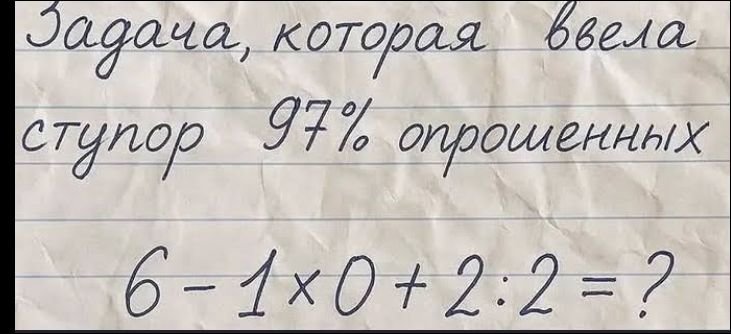 Задача, которая ввела
ступор 97% опрошенных
6 - 1 × 0 + 2 : 2 = ?